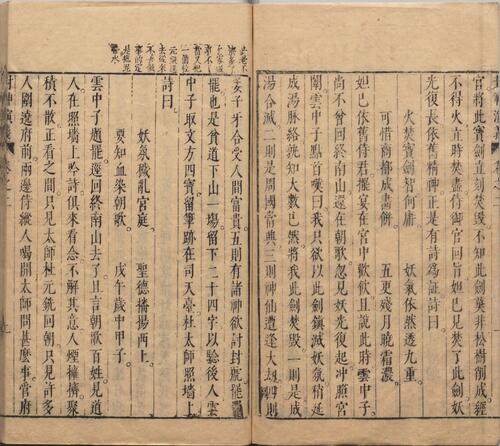 官將此寶劍立刻焚燬不知此劍莫非松樹削成經
不得火立時焚盡侍御官回旨妲巳見焚了此劍妖
光復長依舊精神正是有詩爲証詩曰
火焚寶劍智何庸。 妖氣依然透九重。
可惜商都成畫餅。 五更殘月曉霜濃。
妲巳依舊侍君擺宴在宮中歡飲且說此時雲中子
尚不曾回終南山還在朝歌忽見妖光復起冲照宮
闈雲中子點首嘆曰我只欲以此劍鎮滅妖氛稍延
成湯脉絡孰知大數巳然將我此劍焚毀一則是成
湯合滅二則是周國當興三則神仙遭逢大刼四則
姜子牙合受人間富貴五則有諸神欲討封號罷
罷也是貧道下山一場留下二十四字以驗後人雲
中子取文方四寶留筆跡在司天臺杜太師照墻上
詩曰
妖氛穢亂宮庭。 聖德播揚西土。
要知血染朝歌。 戊午歲中甲子。
雲中子題罷逕回終南山去了且言朝歌百姓見道
人在照墻上吟詩俱來看念不解其意人煙擁擠聚
積不散正看之間只見太師杜元銑回朝只見許多
人圍遶府前兩邊侍從人喝開太師問甚麼事管府
封神演義 卷之二